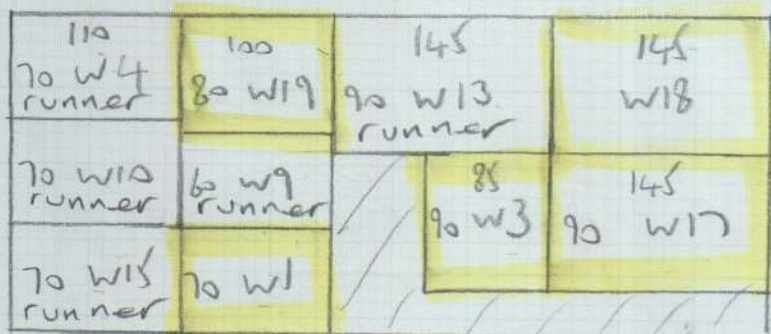 110
70 W4
runner
100
80 W19
145
90 W13
runner
145
W18
70 W10
runner
60 W9
runner
85
90 W3
145
90 W17
70 W15
runner
70 W1